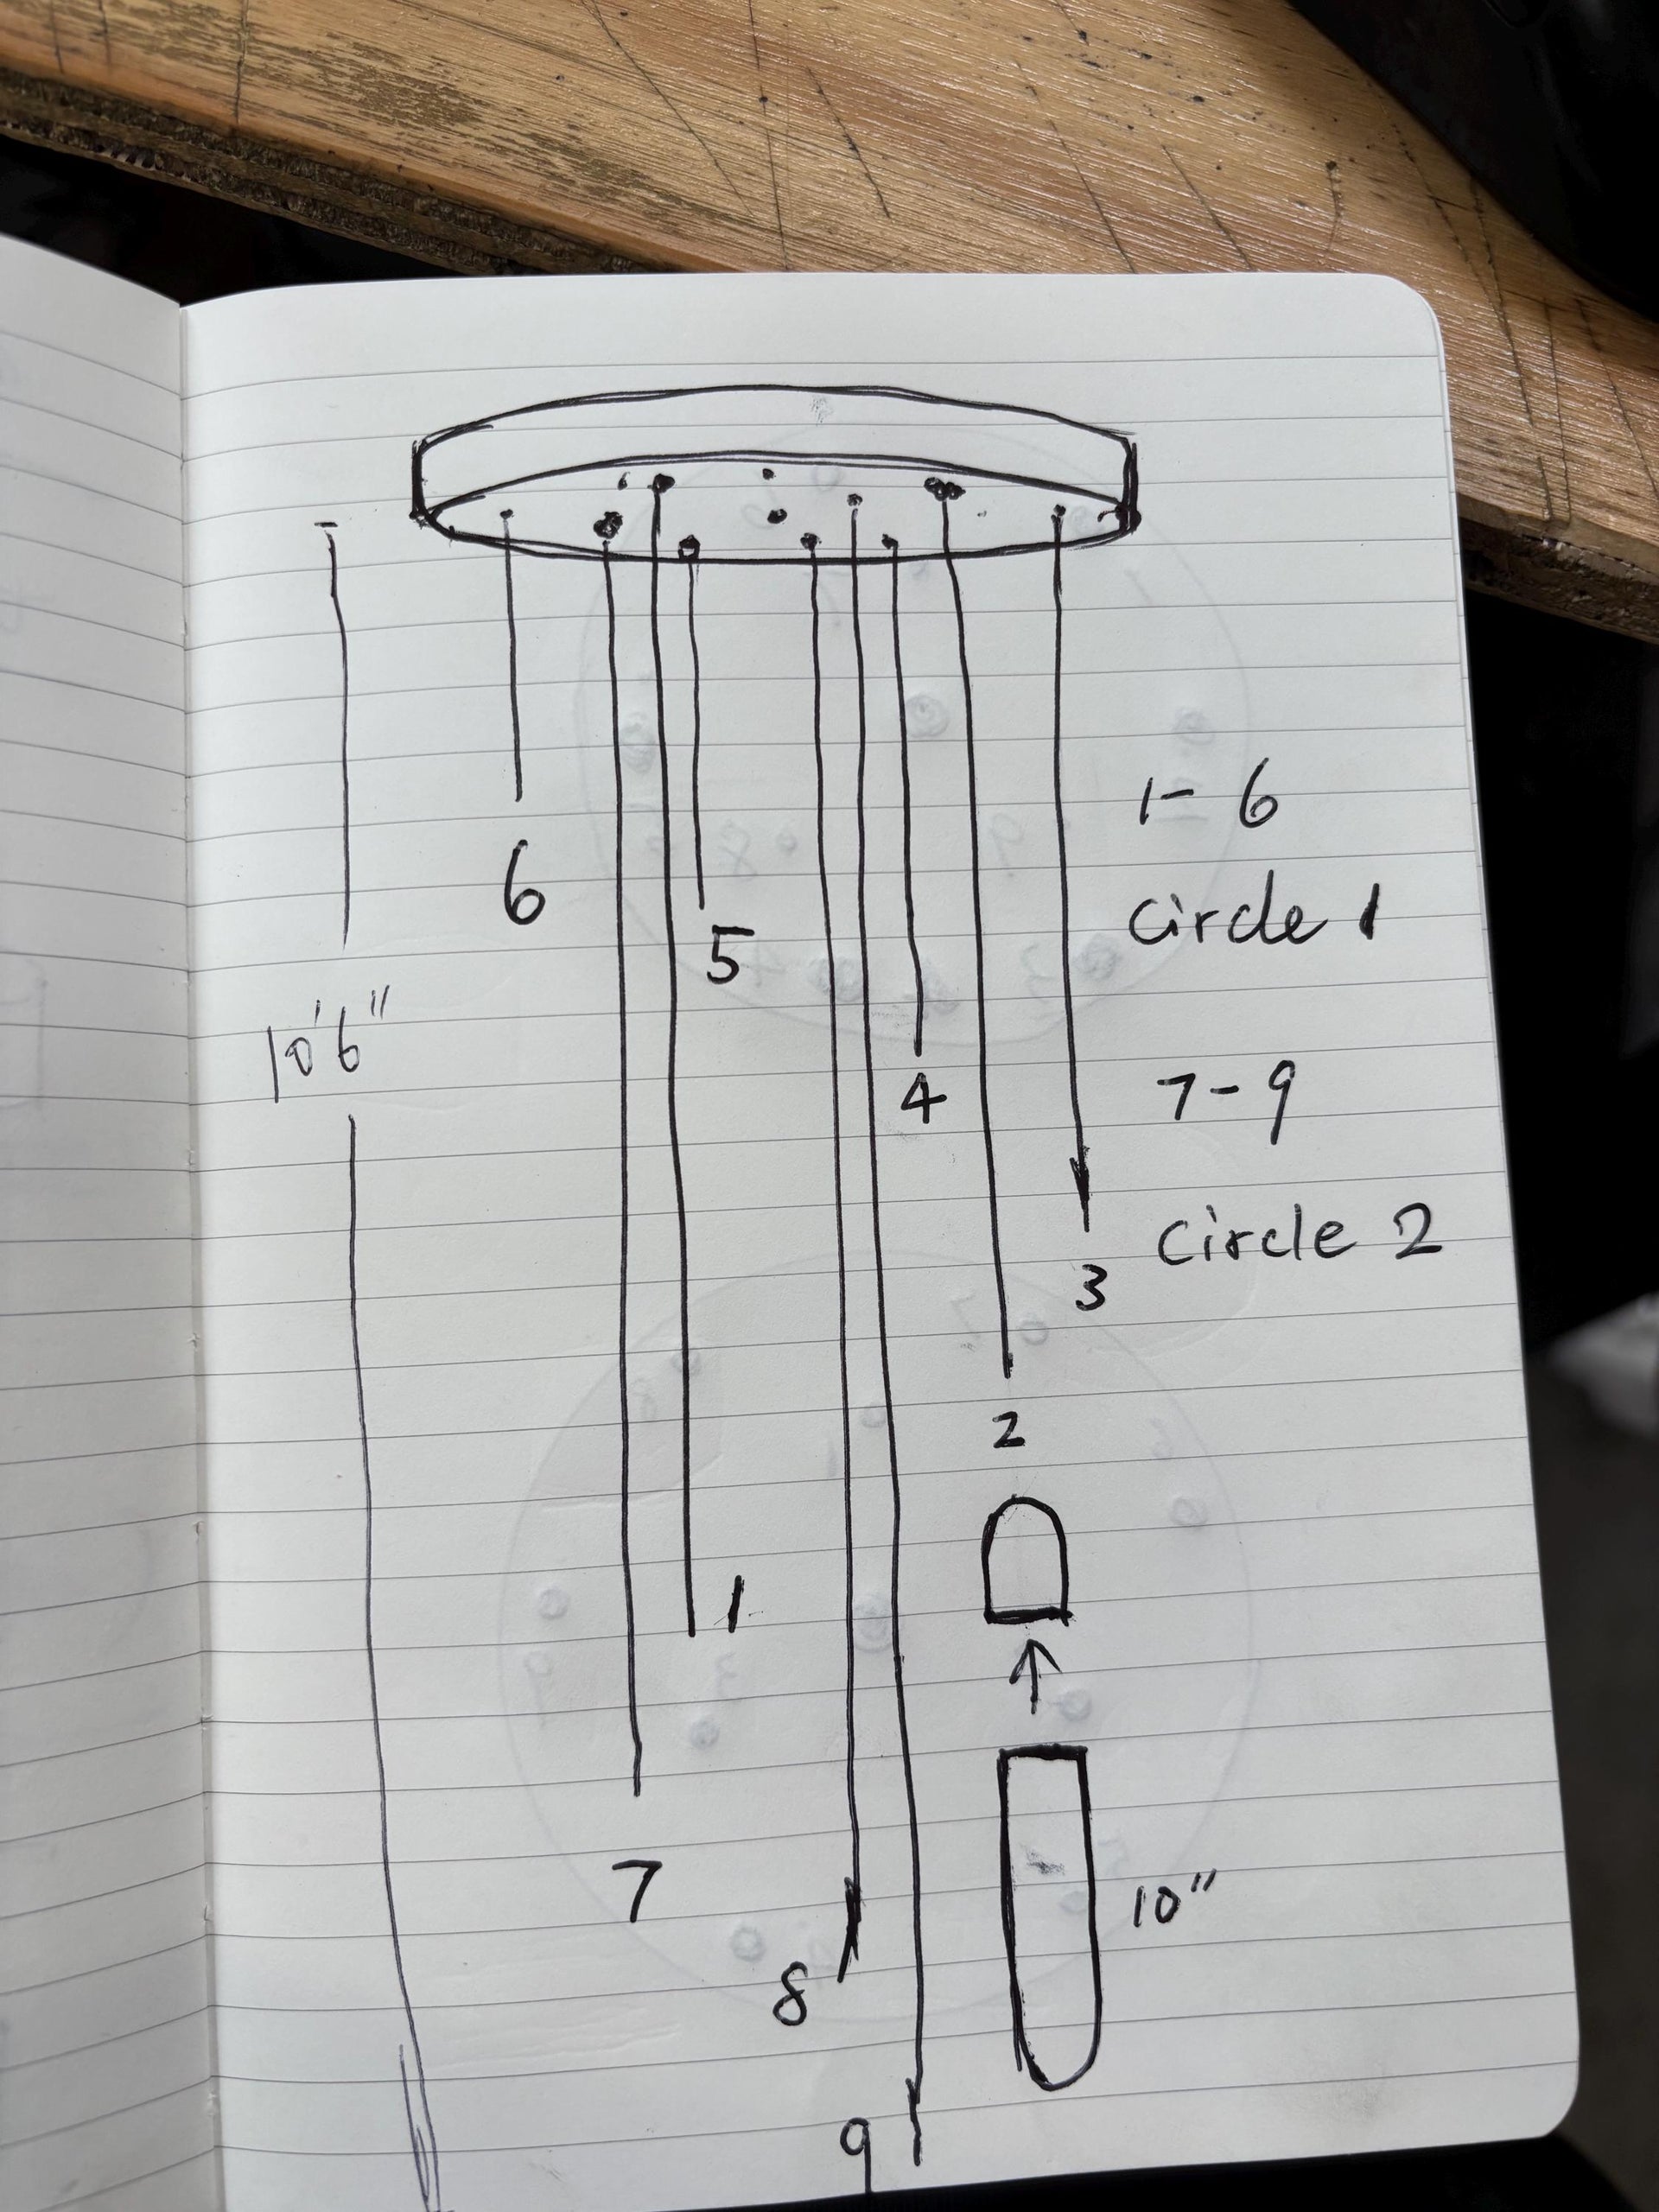 1-6
6
circle 1
5
10'6"
4
7-9
circle 2
3
2
1
7
10"
8
9